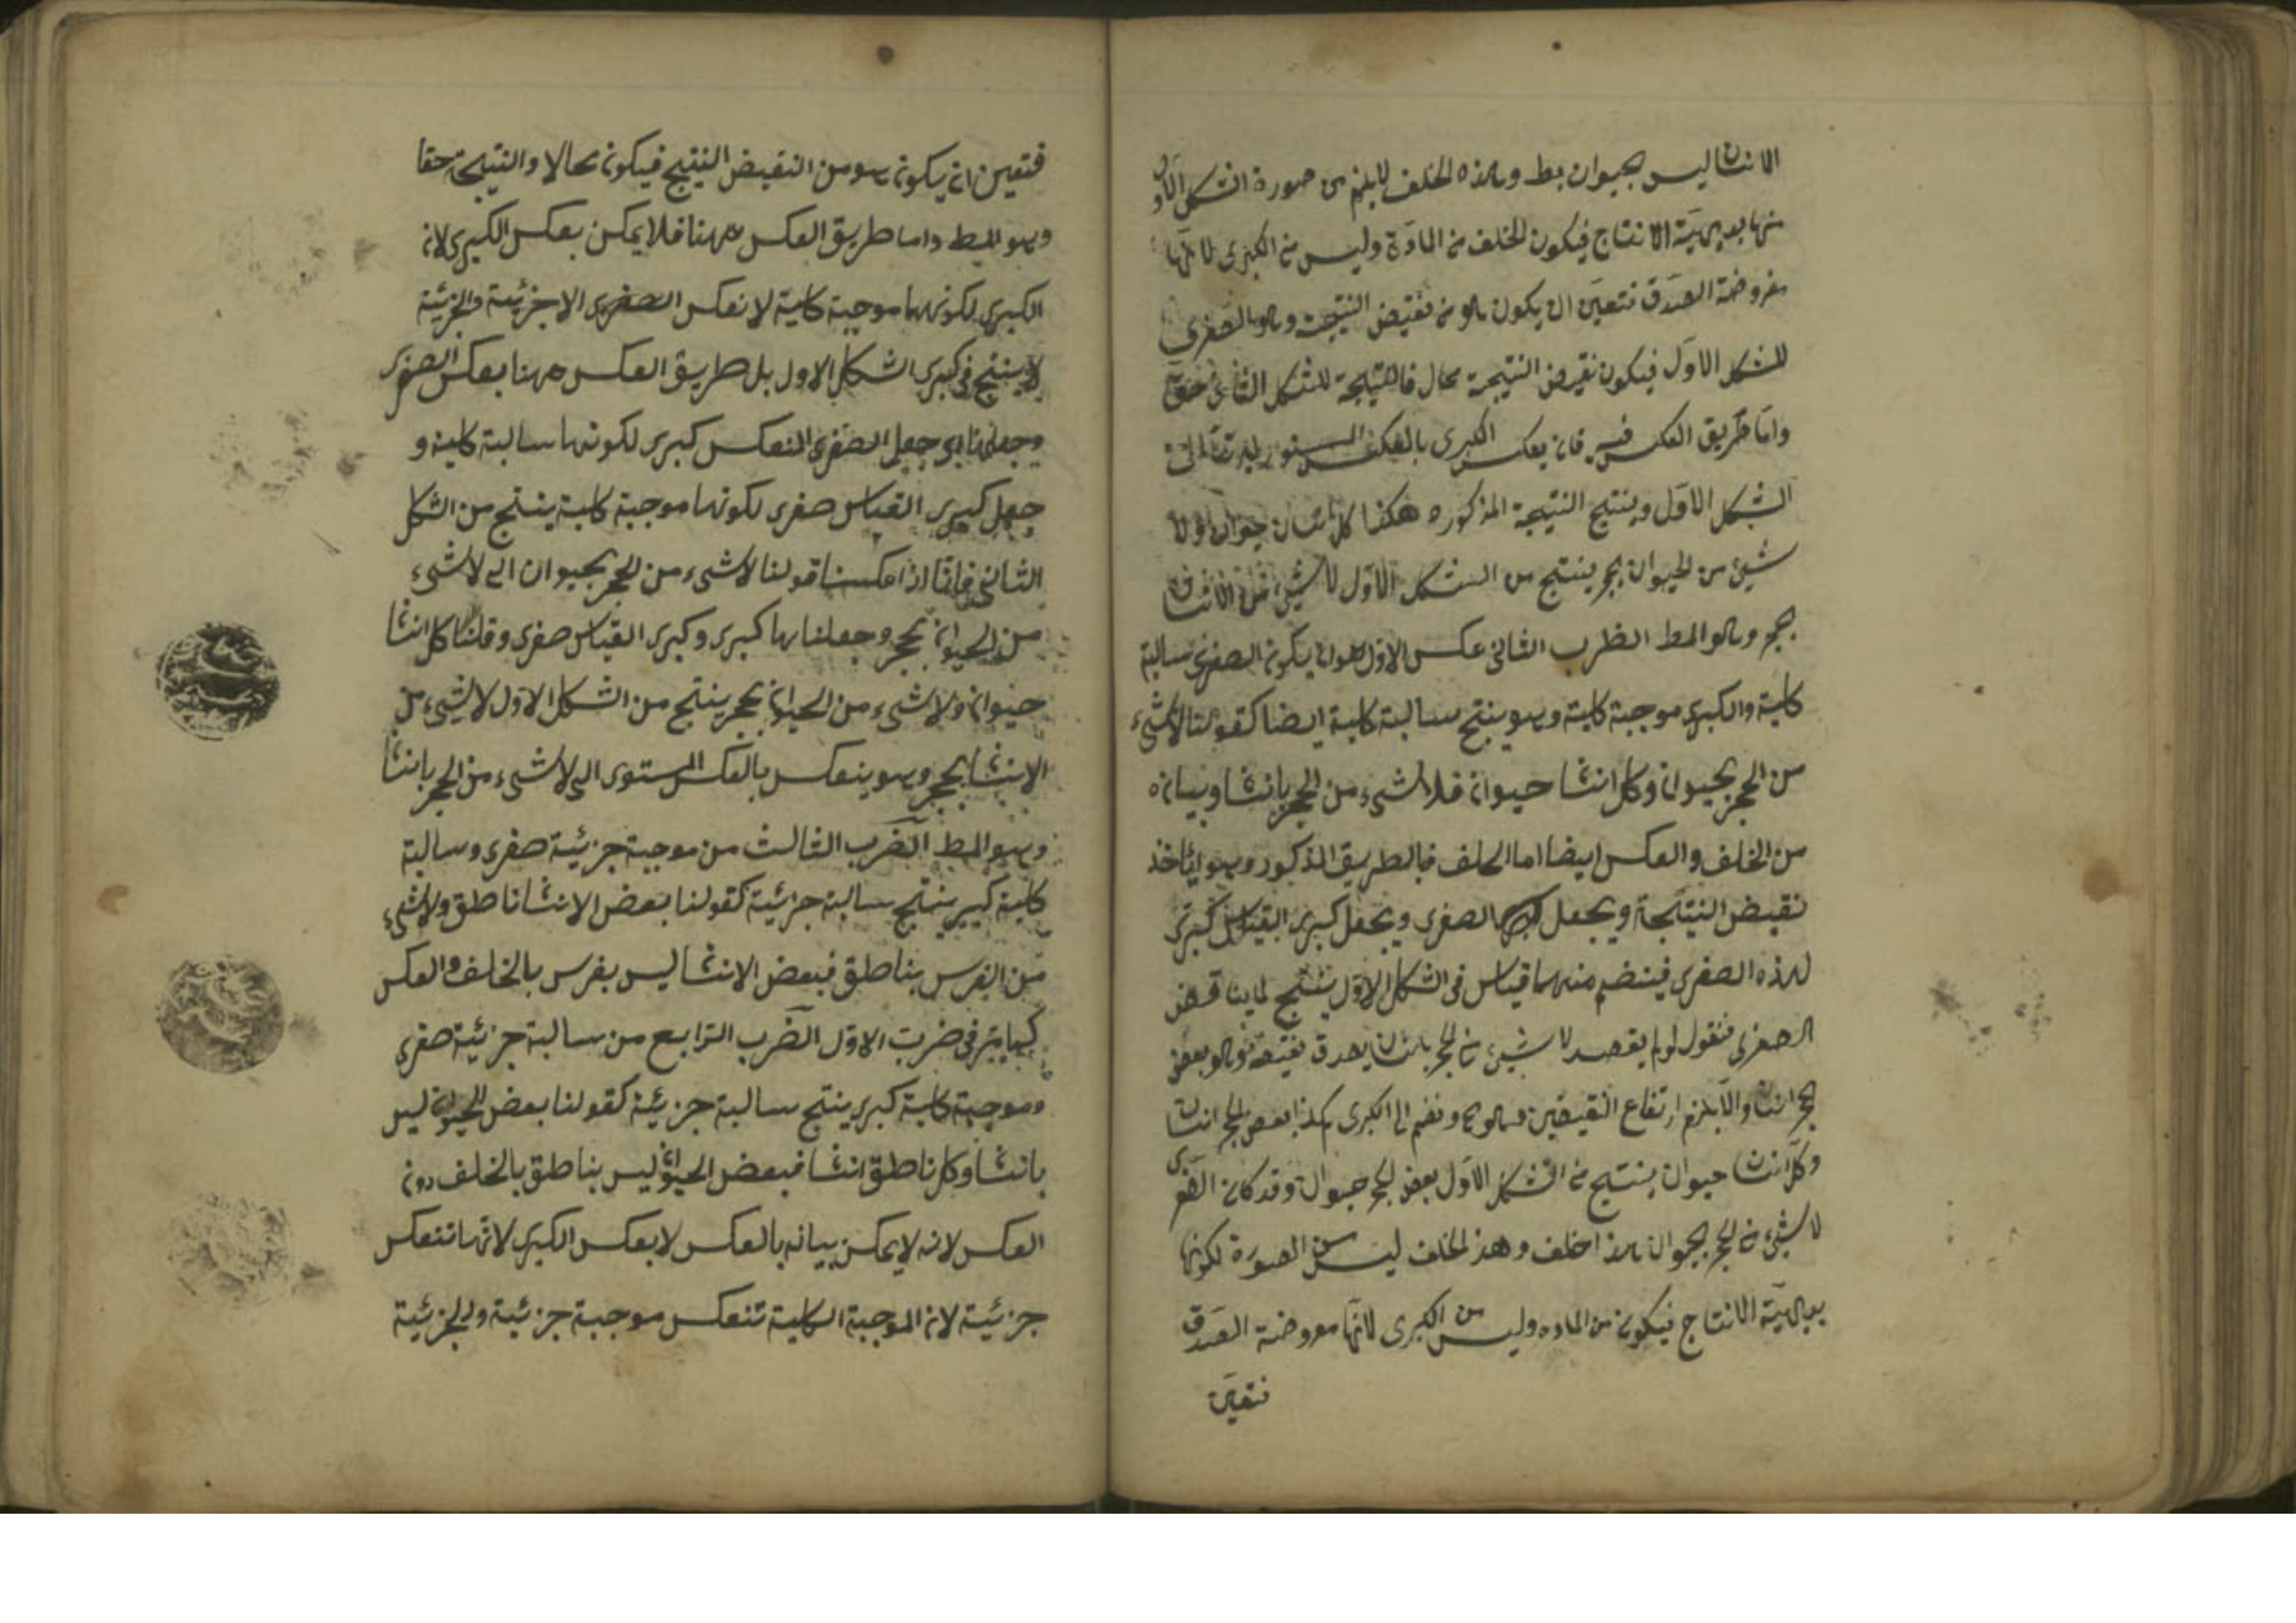 الانسان ليس بحيوان بط وهذه الخلف لا يلزم من صورة الشكل الاول
منها بديهية الانتاج فيكون الخلف من المادة وليس من الكبرى لانها
مفروضة الصدق فتعين ان يكون هو من نقيض النتيجة وهو الصغرى
للشكل الاول فيكون نقيض النتيجة محال فالنتيجة للشكل الثانى حق
واما طريق العكس فهو فان يعكس الكبرى بالعكس المستوى ليرتد الى
الشكل الاول وينتج النتيجة المذكوره هكذا كل انسان حيوان ولا
شيئ من الحيوان بحجر ينتج من الشكل الاول لا شيئ من الانسان
بحجر وهو المط الظرب الثانى عكس الاول هو ان يكون الصغرى سالبة
كلية والكبرى موجبة كلية وهو ينتج سالبة كلية ايضا كقولنا لا شىء
من الحجر بحيوان وكل انسا حيوان فلا شىء من الحجر بانسا وبيانه
من الخلف والعكس ايضا اما الخلف فبالطريق المذكور وهو ان تاخذ
نقيض النتيجة ويجعل الصغرى ويجعل كبرى القياس كبرى
لهذه الصغرى فينضم منهما قياس فى الشكل الاول ينتج لما يناقض
الصغرى فنقول لو لم يصدق لا شيئ من الحجر بانسان يصدق نقيضه وهو بعض
الحجر انسان والا يلزم ارتفاع النقيضين وهو مح ونضم الى الكبرى هكذا بعض الحجر انسان
وكل انسان حيوان ينتج من الشكل الاول بعض الحجر حيوان وقد كان الصغرى
لا شيئ من الحجر بحيوان هذا خلف وهذ الخلف ليس من الصورة لكونها
بديهية الانتاج فيكون من الماده وليس من الكبرى لانها مفروضة الصدق
فتعين
فتعين ان يكون هو من النقيض النتيج فيكون محالا والنتيجة حقا
وهو المط واما طريق العكس ههنا فلا يمكن بعكس الكبرى لان
الكبرى لكونهما موجبة كلية لا نعكس الصغرى الا جزئية والجزئية
لا ينتج فى كبرى الشكل الاول بل طريق العكس ههنا بعكس الصغرى
وجعلها اى جعل الصغرى المنعكس كبرى لكونها سالبة كلية و
جعل كبرى القياس صغرى لكونها موجبة كلية ينتج من الشكل
الثانى فانا اذا عكسنا قولنا لا شىء من الحجر بحيوان الى لا شىء
من الحيوان بحجر وجعلناها كبرى وكبرى القياس صغرى وقلنا كل انسا
حيوان ولا شىء من الحيوان بحجر ينتج من الشكل الاول لا شىء من
الانسا بحجر وهو ينعكس بالعكس المستوى الى لا شىء من الحجر بانسا
وهو المط الضرب الثالث من موجبة جزئية صغرى وسالبة
كلية كبرى ينتج سالبة جزئية كقولنا بعض الانسا ناطق ولا شىء
من الفرس بناطق فبعض الانسا ليس بفرس بالخلف والعكس
كما مر فى ضرب الاول الضرب الرابع من سالبة جزئية صغرى
وموجبة كلية كبرى ينتج سالبة جزئية كقولنا بعض الحيوان ليس
بانسا وكل ناطق انسا فبعض الحيوان ليس بناطق بالخلف دون
العكس لانه لا يمكن بيانه بالعكس لا بعكس الكبرى لانها تنعكس
جزئية لان الموجبة الكلية تنعكس موجبة جزئية والجزئية